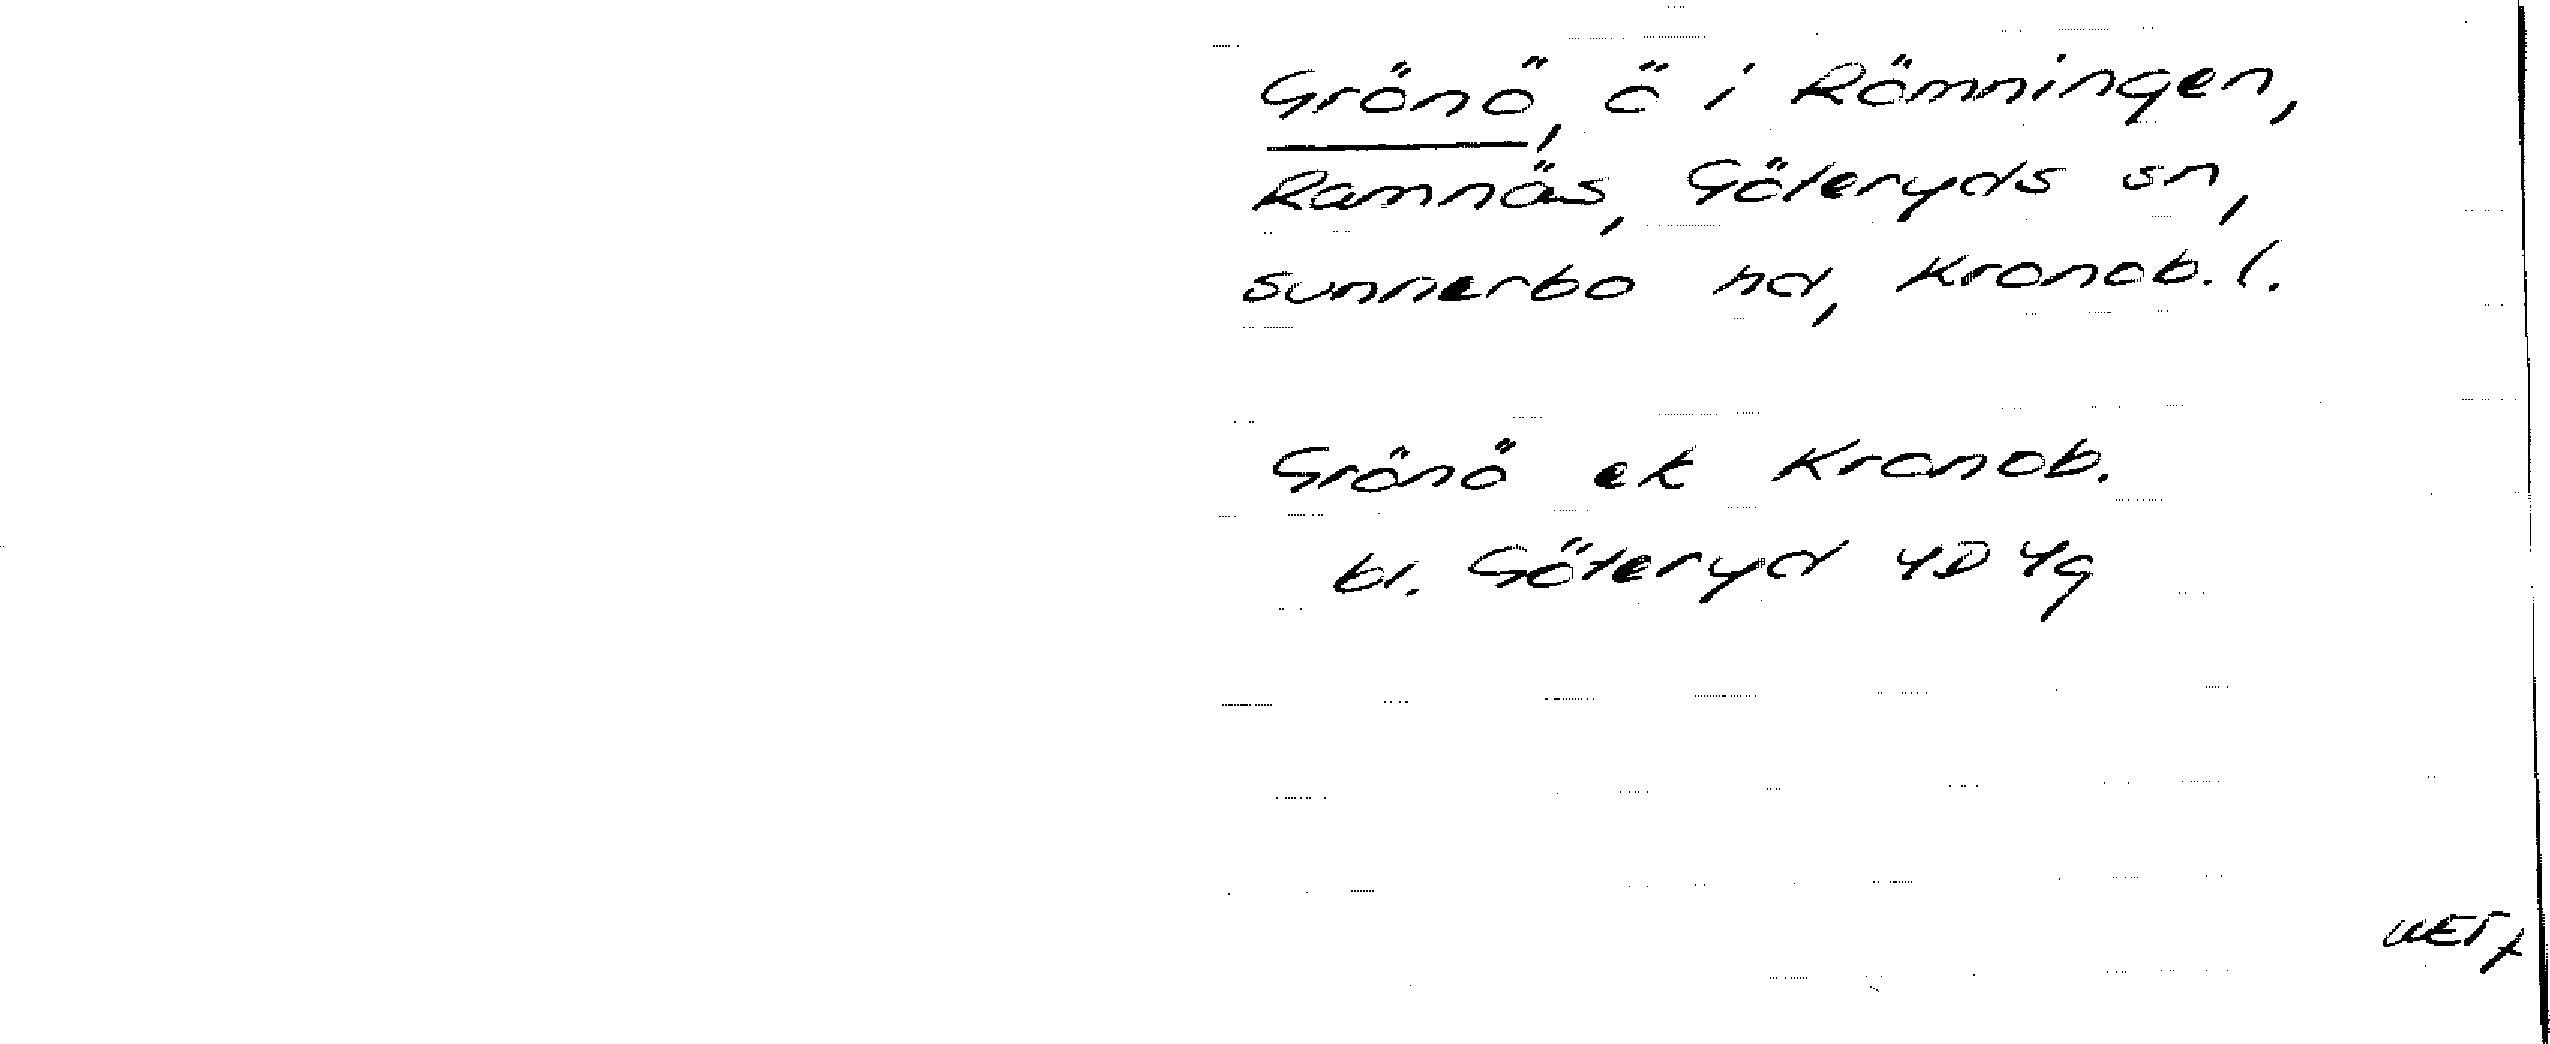 Grönö, ö i Römningen,
Ramnäs, Göteryds sn,
Sunnerbo hd, Kronob. l.
Grönö ek Kronob.
bl. Göteryd 4D 4g